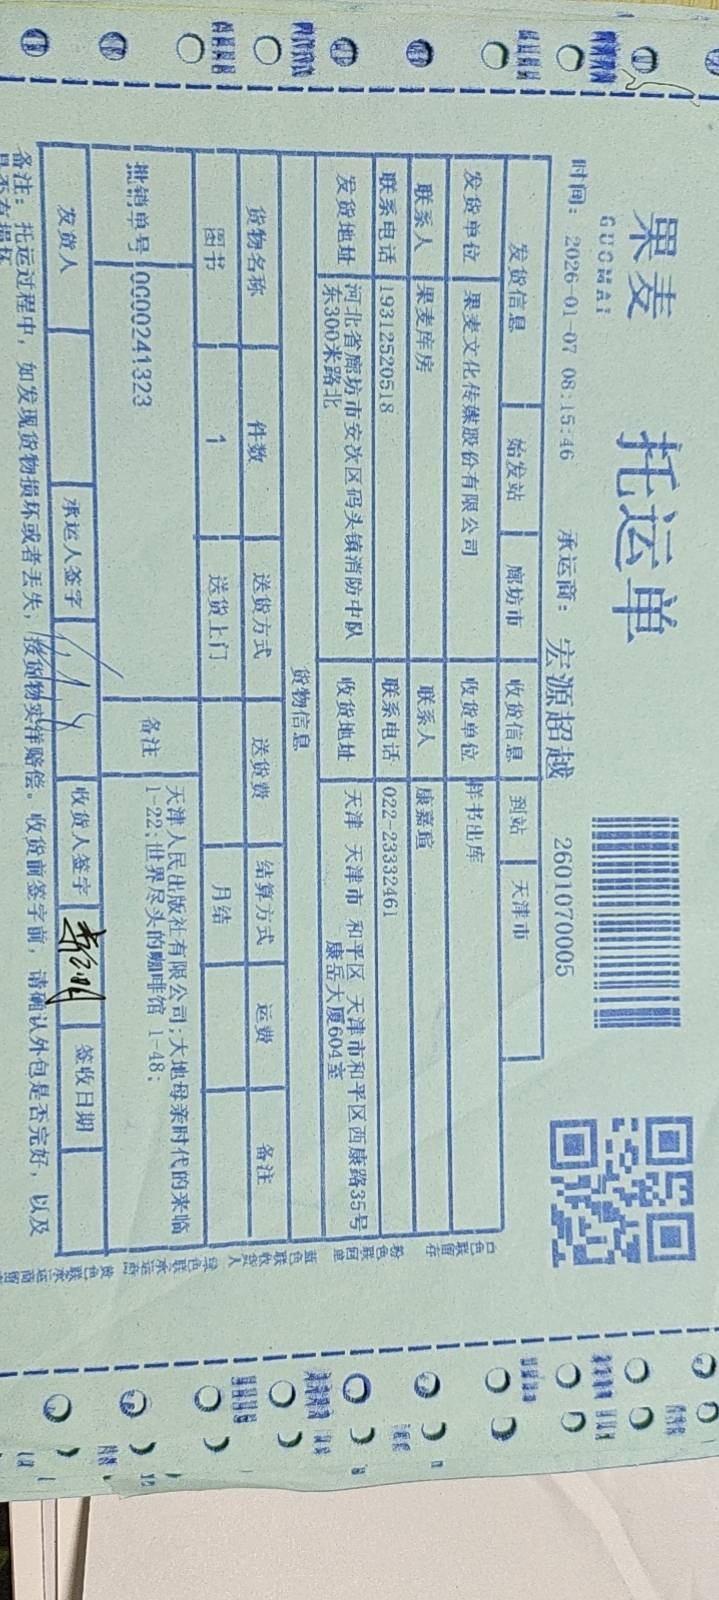 果麦
GUOMAI
托运单
时间： 2026-01-07 08:15:46 承运商： 宏源超越 2601070005
发货信息 始发站 廊坊市 收货信息 到站 天津市
发货单位 果麦文化传媒股份有限公司 收货单位 样书出库
联系人 果麦库房 联系人 康嘉瑄
联系电话 19312520518 联系电话 022-23332461
发货地址 河北省廊坊市安次区码头镇消防中队
东300米路北
收货地址 天津 天津市 和平区 天津市和平区西康路35号
康岳大厦604室
货物信息
货物名称 件数 送货方式 送货费 结算方式 运费 备注
图书 1 送货上门 月结
批销单号 0G00241323 备注 天津人民出版社有限公司;大地母亲时代的来临
1-22;世界尽头的咖啡馆 1-48;
发货人 承运人签字 收货人签字 签收日期
备注： 托运过程中，如发现货物损坏或者丢失，按货物实洋赔偿。收货前签字前，请确认外包是否完好，以及
是否有损坏
白色联留存 粉色联回单 蓝色联收货人 绿色联承运商 黄色联承运商留